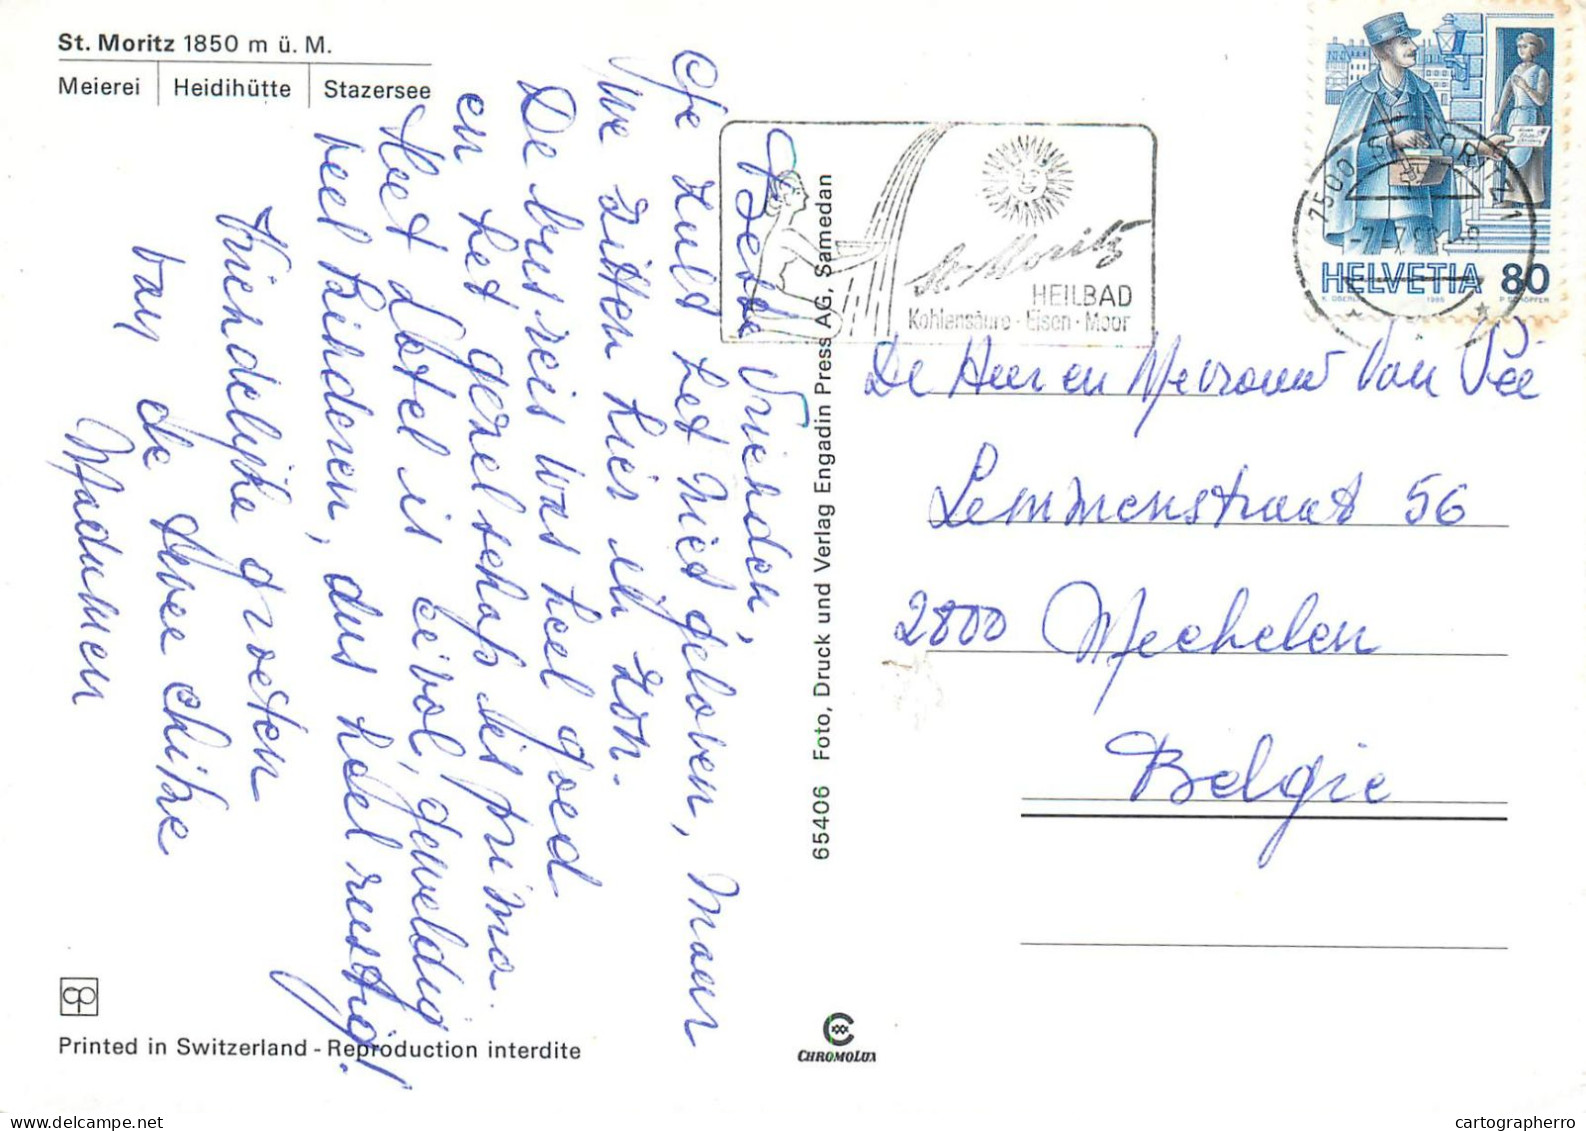 St. Moritz 1850 m ü. M.
Meierei | Heidihütte | Stazersee
Beste Vrienden,
Gje zult het niet geloven, maar
we zitten hier in zon.
De busreis was heel goed
en het gezelschap is prima.
Het Hotel is bevolgeweldig
veel kinderen, dus heel rustig!
Vriendelijke groeten
van de
Madeleen
Printed in Switzerland - Reproduction interdite
65406 Foto, Druck und Verlag Engadin Press AG, Samedan
CHROMOLUX
St. Moritz
HEILBAD
Kohlensäure - Eisen - Moor
7500 ST. MORITZ 1
HELVETIA 80
1986
De Heer en Mevrouw Van Pee
Lemmenstraat 56
2800 Mechelen
Belgie
cartographerro